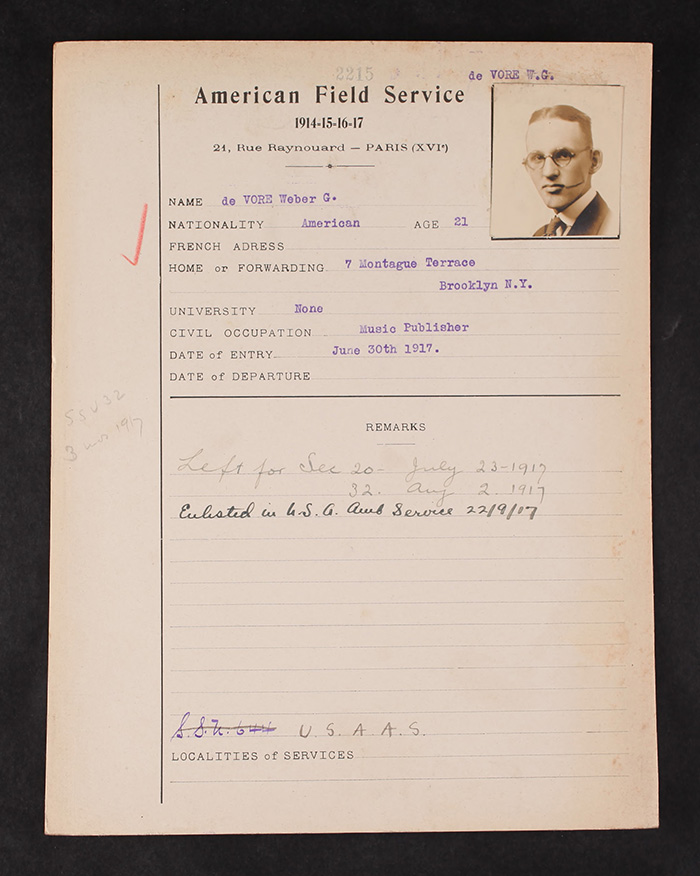 2215
de VORE W.G.
American Field Service
1914-15-16-17
21, Rue Raynouard — PARIS (XVIe)
NAME de VORE Weber G.
NATIONALITY American AGE 21
FRENCH ADRESS
HOME or FORWARDING 7 Montague Terrace
Brooklyn N.Y.
UNIVERSITY None
CIVIL OCCUPATION Music Publisher
DATE of ENTRY June 30th 1917.
DATE of DEPARTURE
SSU 32
3 mos 1917
REMARKS
Left for Sec 20- July 23-1917
32. Aug 2. 1917
Enlisted in U.S.A. Amb Service 22/9/17
S.S.U. 644 U.S.A.A.S.
LOCALITIES of SERVICES